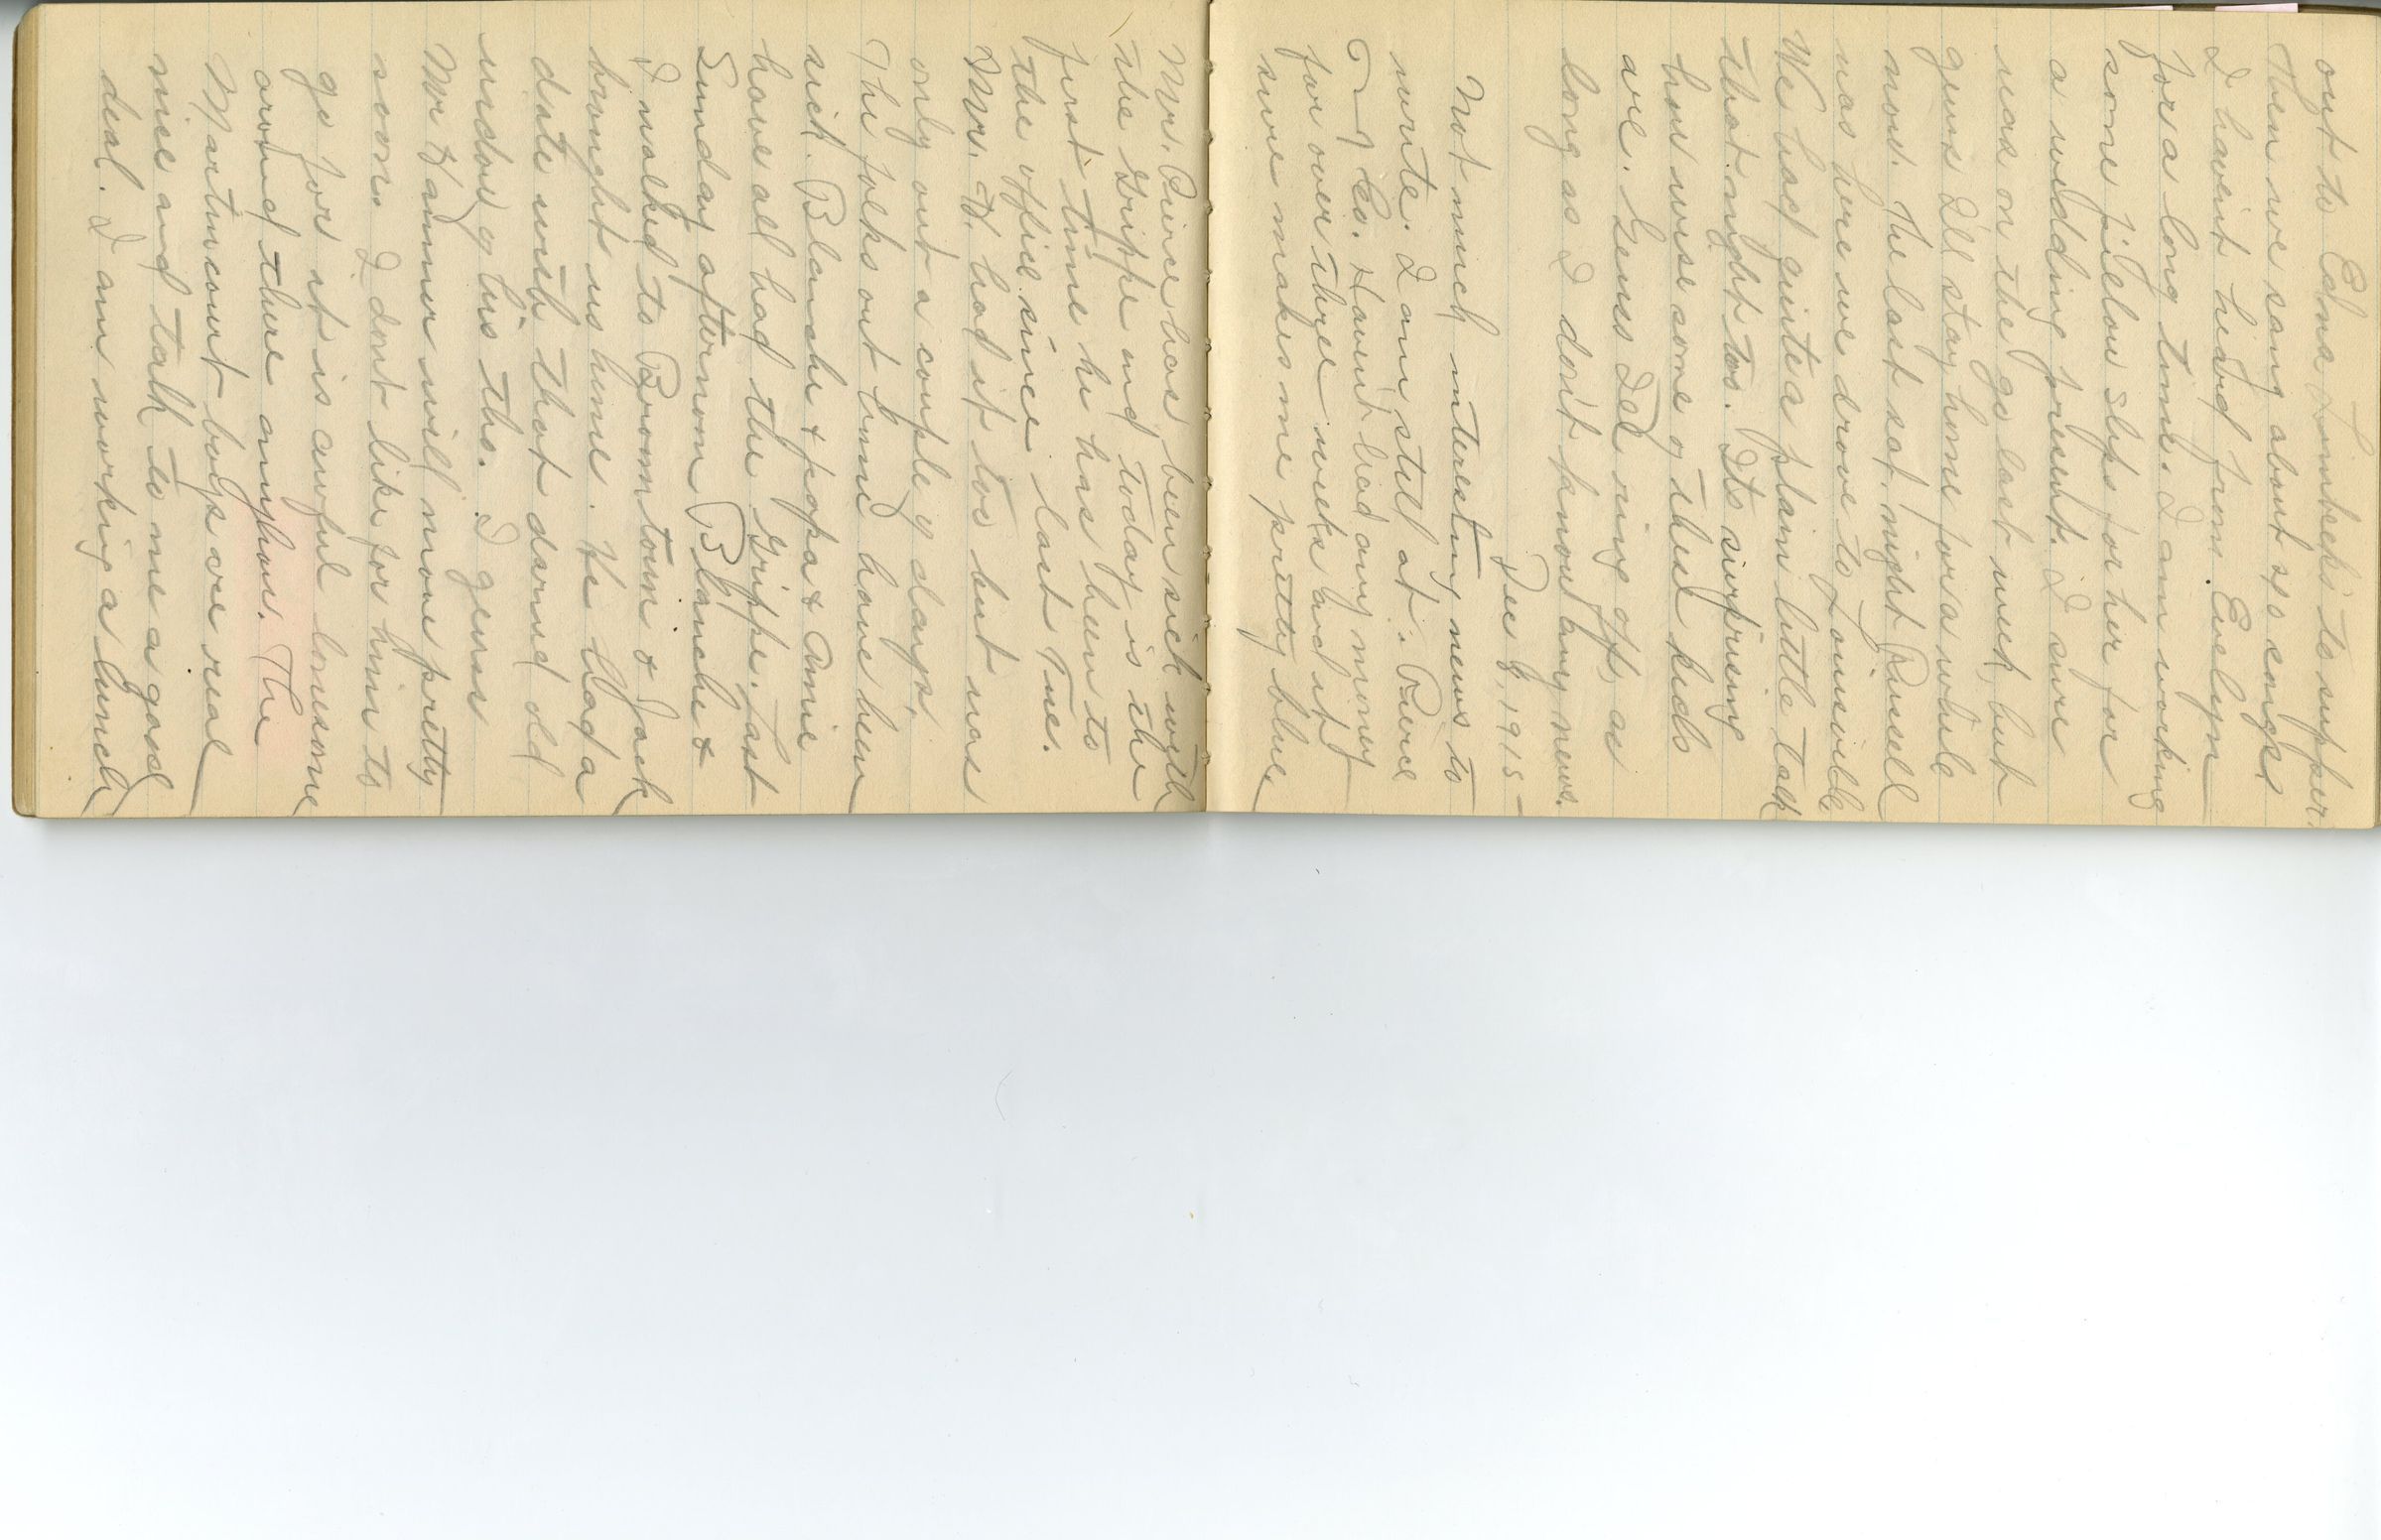 out to Edna Limbecks to supper.
Then we sang about 250 songs
I havent heard from Evelyn
for a long time. I am working
some pillow slips for her for
a wedding present. I sure
was on the go last week, but
guess I'll stay home for a while
now. The last sat. night Russell
was here we drove to Louisville
We had quite a plain little talk
that night too. Its surprising
how wise some of these kids
are. Guess I'll ring off, as
long as I don't know any news.
Dec 8, 1915 —
Not much interesting news to
write. I am still at. Pierce
& Co. Havent had any money
for over three weeks and it
sure makes me pretty blue.
Mr. Pierce has been sick with
the Grippe and today is the
first time he has been to
the office since last Tue.
Mr. H. had it too but was
only out a couple of days.
The folks out home have been
sick. Blanche & papa & Amie
have all had the Grippe. Last
Sunday afternoon Blanche &
I walked to Broomtown & Jack
brought us home. He had a
date with that darned old
widow of his tho. I guess
Mr Hammer will move pretty
soon. I dont like for him to
go for it is awful lonesome
around there anyhow. The
Martincourt boys are real
nice and talk to me a good
deal. I am working a lunch